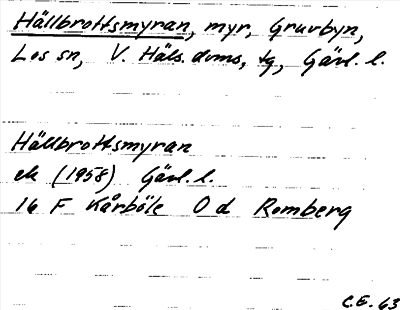 Hällbrottsmyran, myr, Gruvbyn,
Los sn, V. Häls. doms, tg, Gävl. l.
Hällbrottsmyran
ek (1958) Gävl. l.
16 F Kårböle 0 d Romberg
C.E. 63